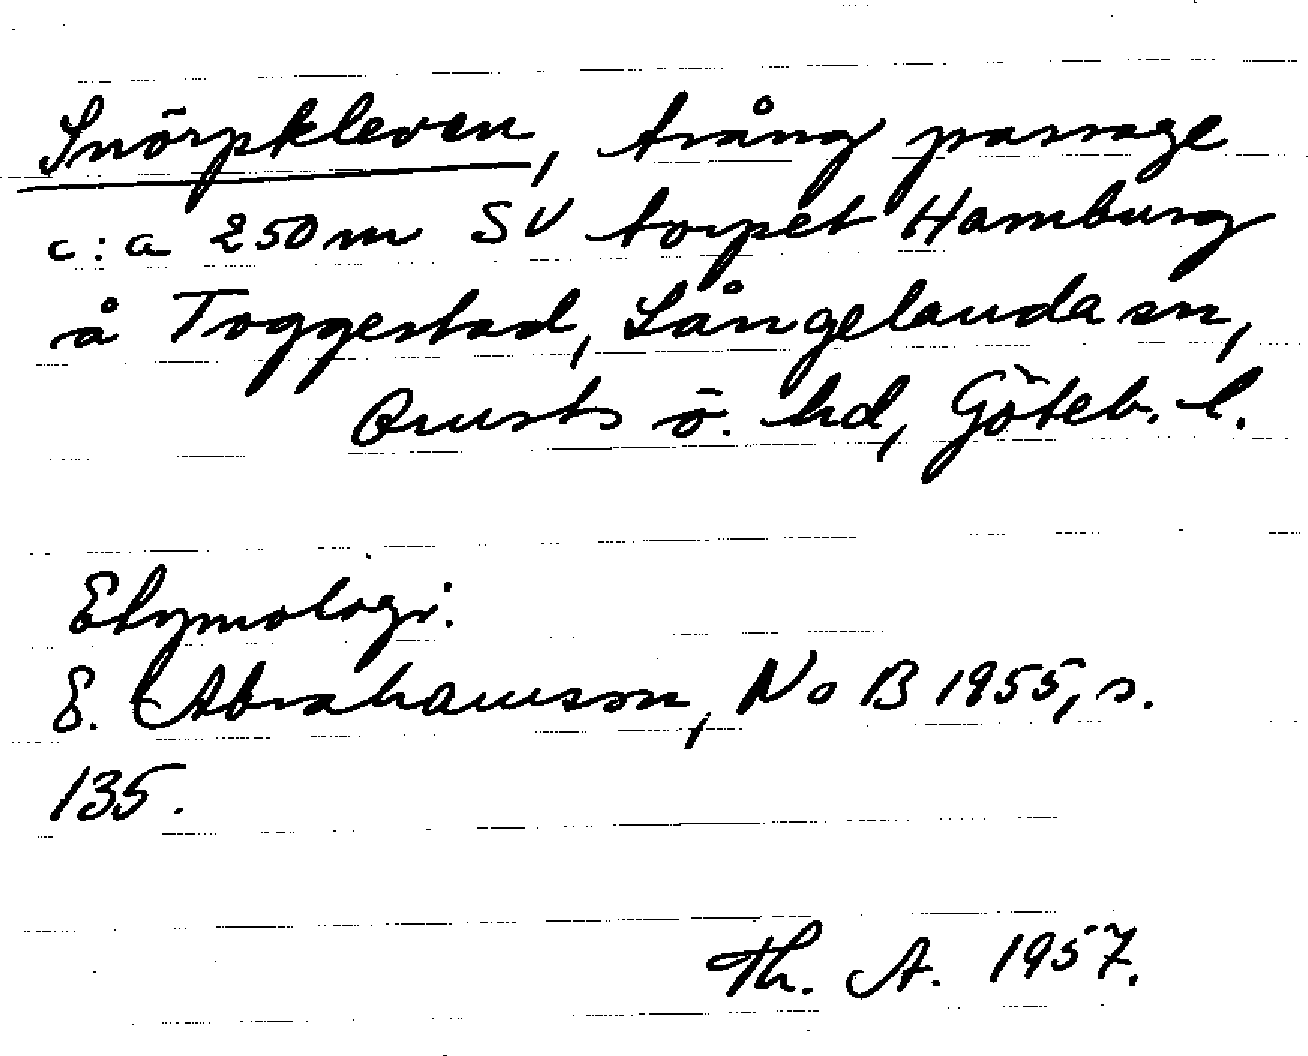 Snörpkleven, trång passage
c:a 250 m SV torpet Hamburg
å Toggestad, Långelanda sn,
Orusts ö. hd, Göteb. l.
Etymologi:
E. Abrahamson, NoB 1955, s.
135.
Th. A. 1957.